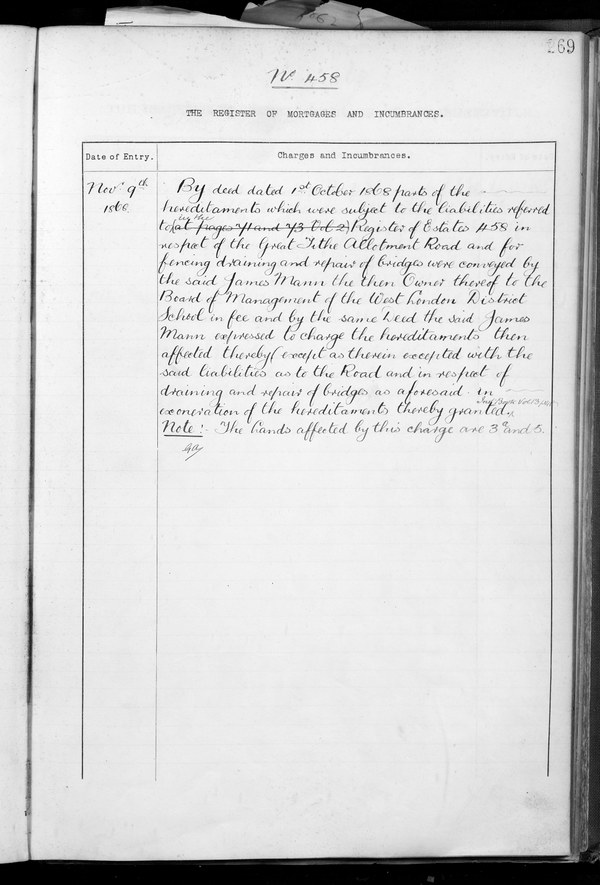 269
No 458
THE REGISTER OF MORTGAGES AND INCUMBRANCES.
Date of Entry.
Charges and Incumbrances.
Novr 9th
1868
By deed dated 1st October 1868 parts of the
hereditaments which were subject to the liabilities referred
in the
to (at pages 71 and 73 Vol 2) Register of Estates 458 in
respect of the Great Tithe Allotment Road and for
fencing draining and repair of bridges were conveyed by
the said James Mann the then Owner thereof to the
Board of Management of the West London District
School in fee and by the same Deed the said James
Mann expressed to charge the hereditaments then
affected thereby (except as therein excepted with the
said liabilities as to the Road and in respect of
draining and repair of bridges as aforesaid in
exoneration of the hereditaments thereby granted.
Note:- The lands affected by this charge are 3a and 5.